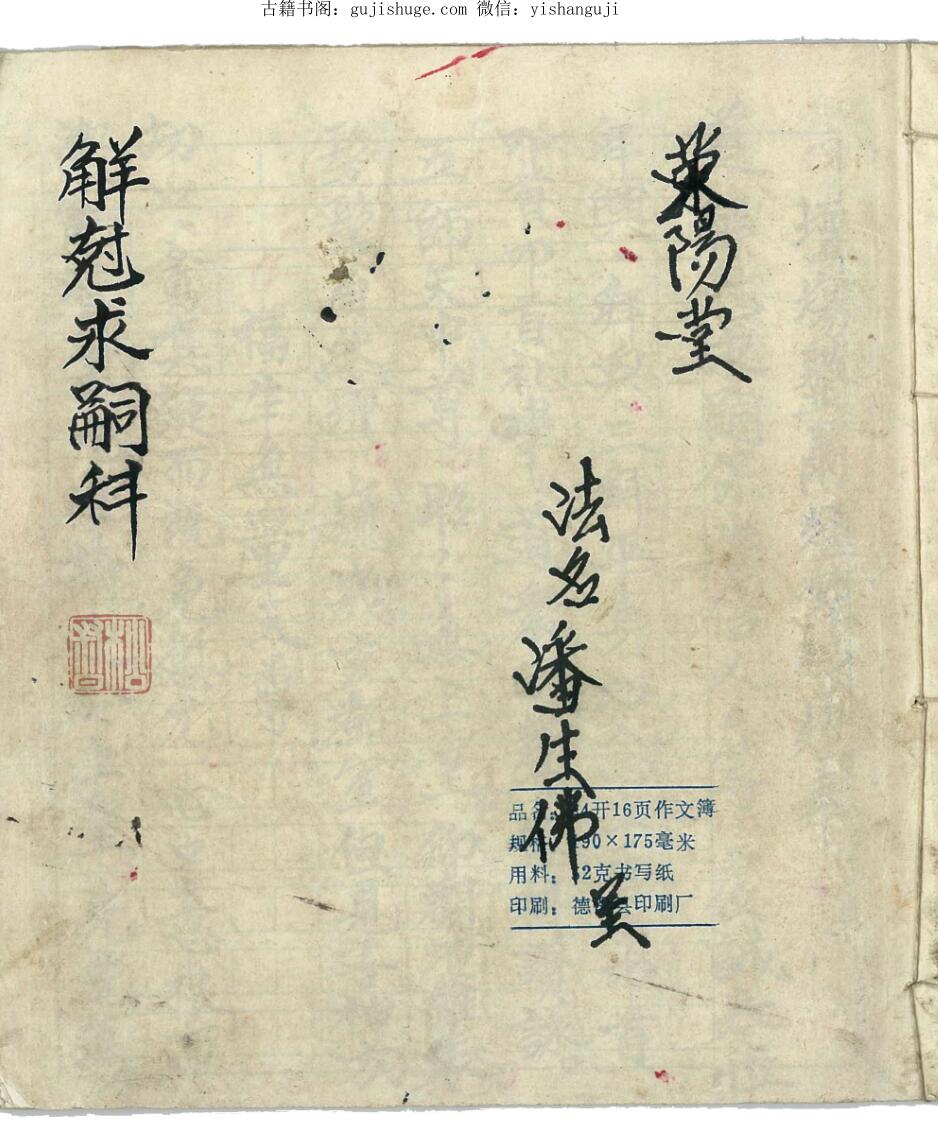 古籍书阁：gujishuge.com 微信：yishanguji
荥陽堂
法名潘生佛
解尅求嗣科
品名：24开16页作文簿
规格：190×175毫米
用料：52克书写纸
印刷：德 县印刷厂